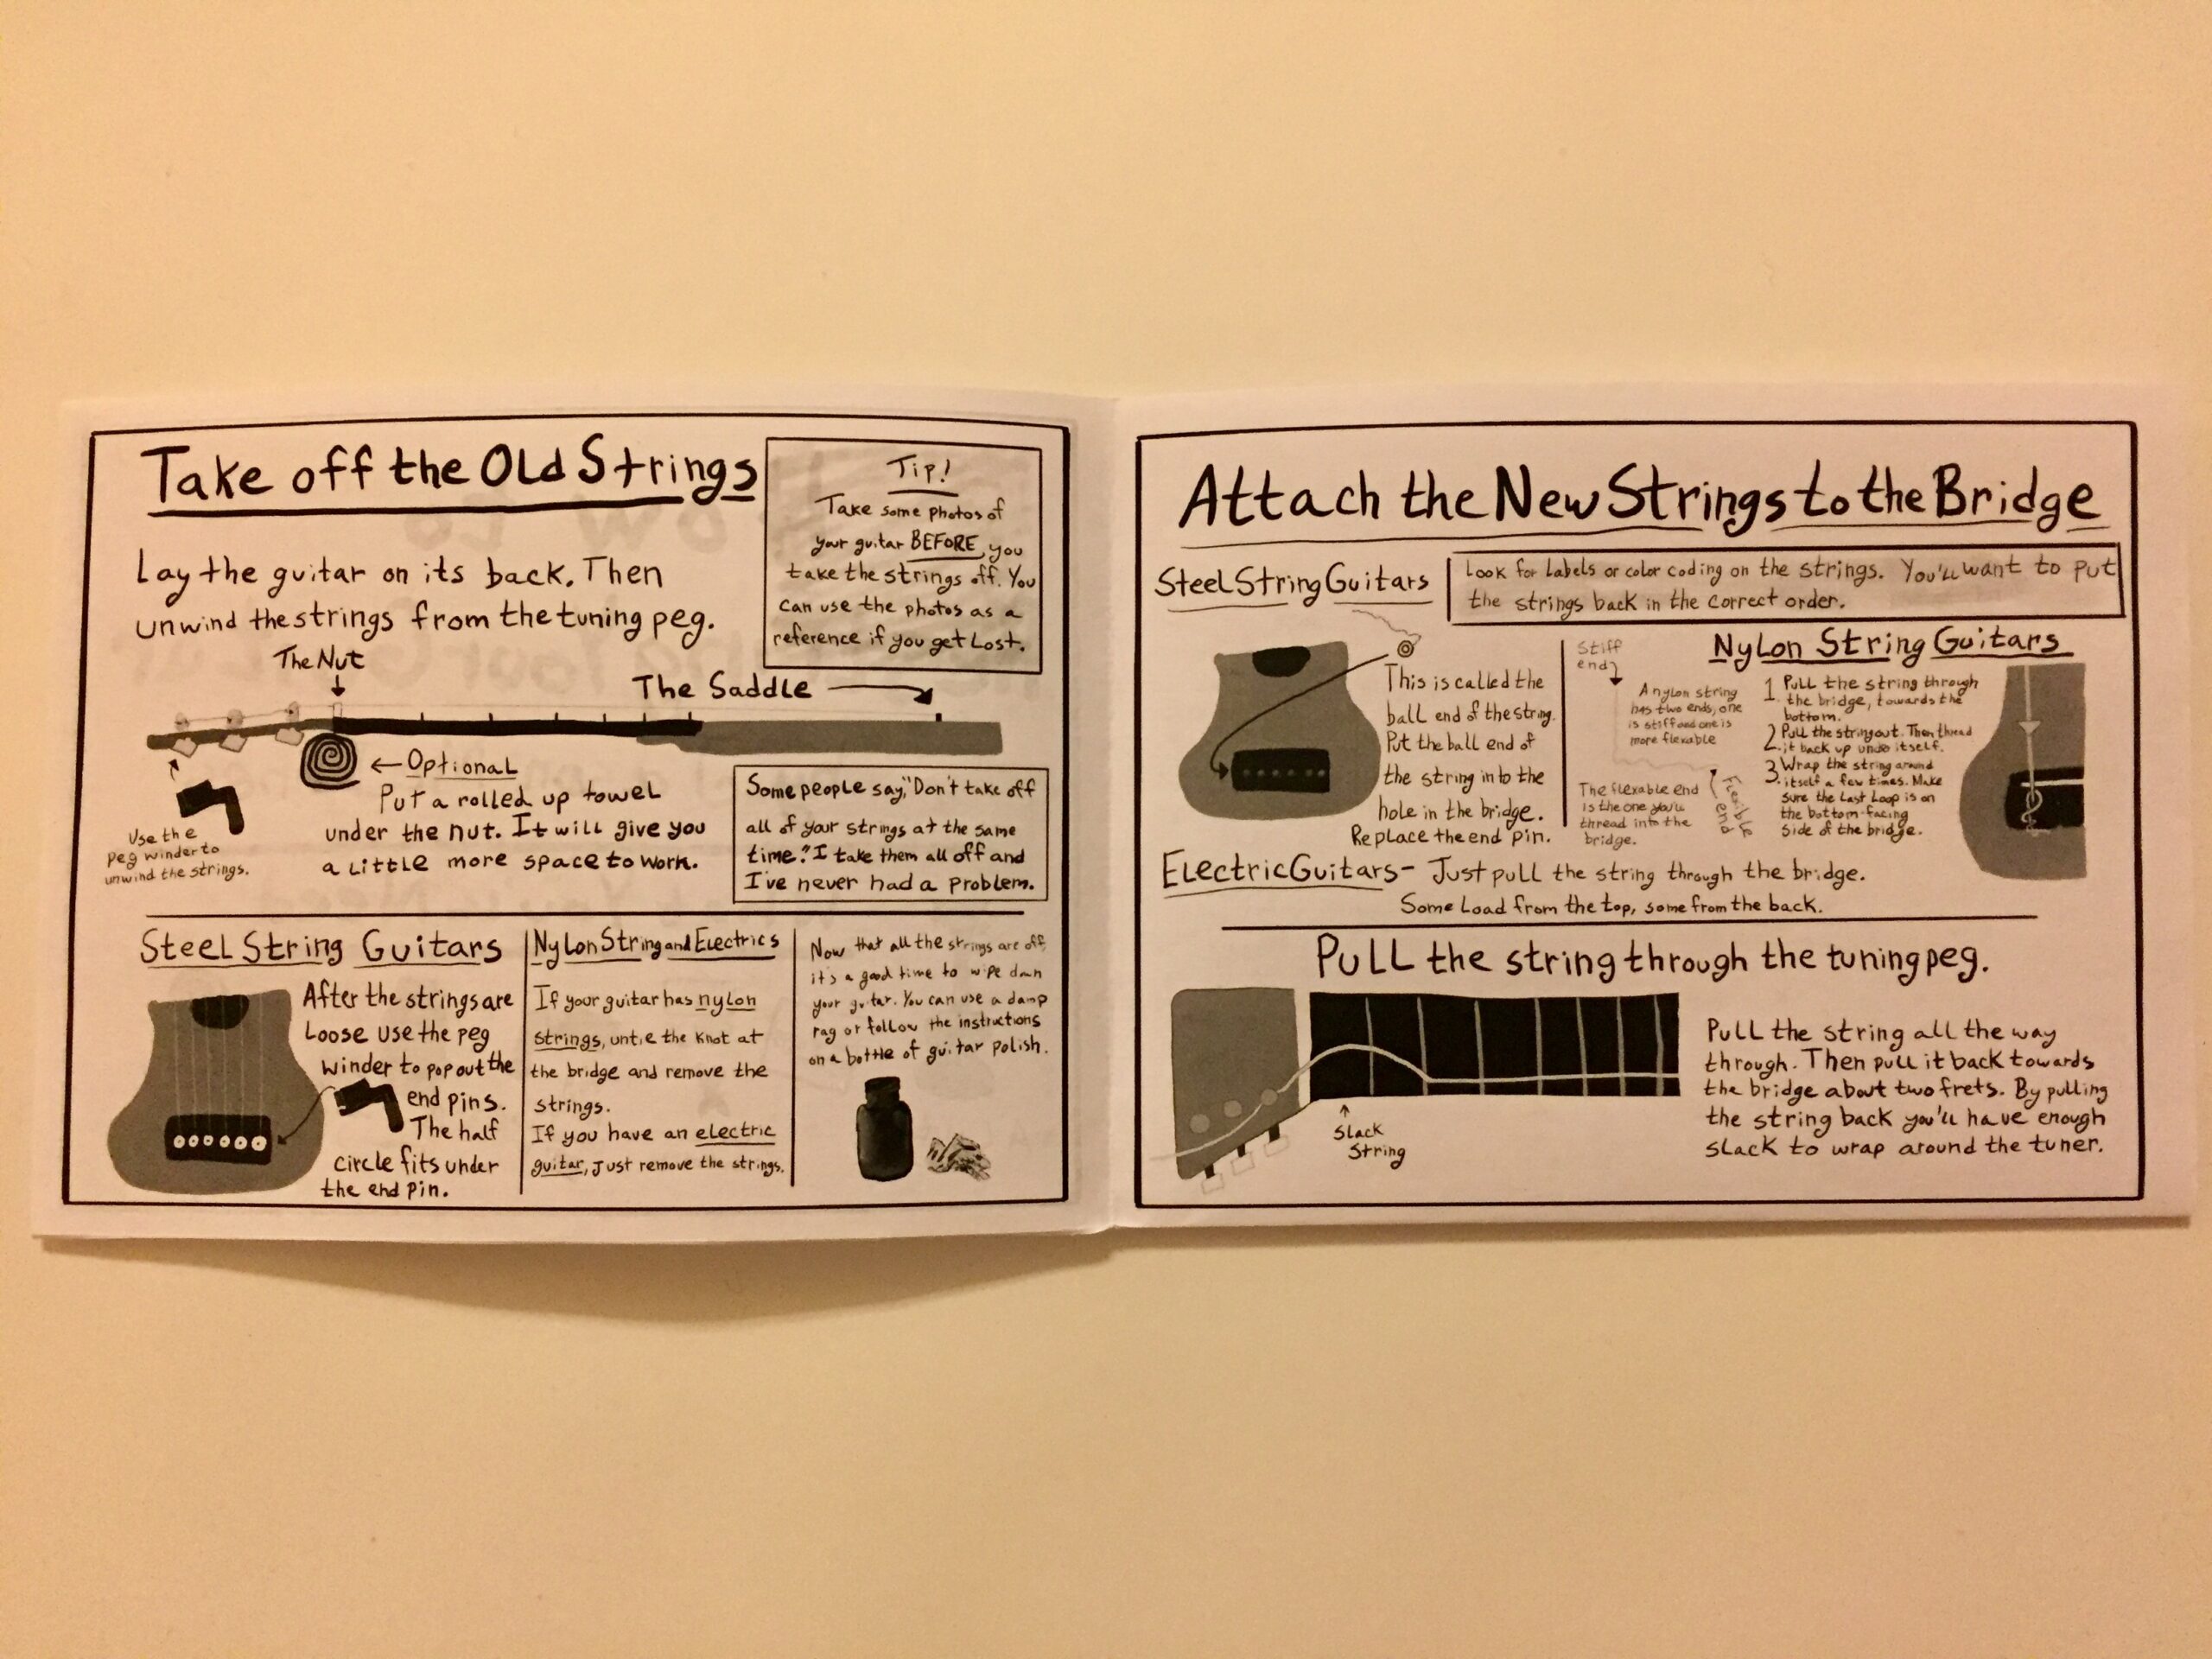 Take off the Old Strings
Tip!
Take some photos of
your guitar BEFORE you
take the strings off. You
can use the photos as a
reference if you get Lost.
Lay the guitar on its back. Then
unwind the strings from the tuning peg.
The Nut
The Saddle
Use the
peg winder to
unwind the strings.
←Optional
Put a rolled up towel
under the nut. It will give you
a Little more space to work.
Some people say, "Don't take off
all of your strings at the same
time." I take them all off and
I've never had a problem.
Steel String Guitars
After the strings are
Loose use the peg
winder to pop out the
end pins.
The half
circle fits under
the end pin.
Nylon String and Electrics
If your guitar has nylon
strings, untie the knot at
the bridge and remove the
strings.
If you have an electric
guitar, Just remove the strings.
Now that all the strings are off,
it's a good time to wipe down
your guitar. You can use a damp
rag or follow the instructions
on a bottle of guitar polish.
Attach the New Strings to the Bridge
Steel String Guitars
Look for Labels or color coding on the strings. You'll want to put
the strings back in the correct order.
This is called the
ball end of the string.
Put the ball end of
the string into the
hole in the bridge.
Replace the end pin.
Stiff
end
A nylon string
has two ends, one
is stiff and one is
more flexable
The flexable end
is the one you'll
thread into the
bridge.
Flexible
end
Nylon String Guitars
1. Pull the string through
the bridge, towards the
bottom.
2. Pull the string out. Then thread
it back up under itself.
3. Wrap the string around
itself a few times. Make
sure the Last Loop is on
the bottom-facing
side of the bridge.
Electric Guitars- Just pull the string through the bridge.
Some Load from the top, some from the back.
Pull the string through the tuning peg.
Slack
String
Pull the string all the way
through. Then pull it back towards
the bridge about two frets. By pulling
the string back you'll have enough
slack to wrap around the tuner.